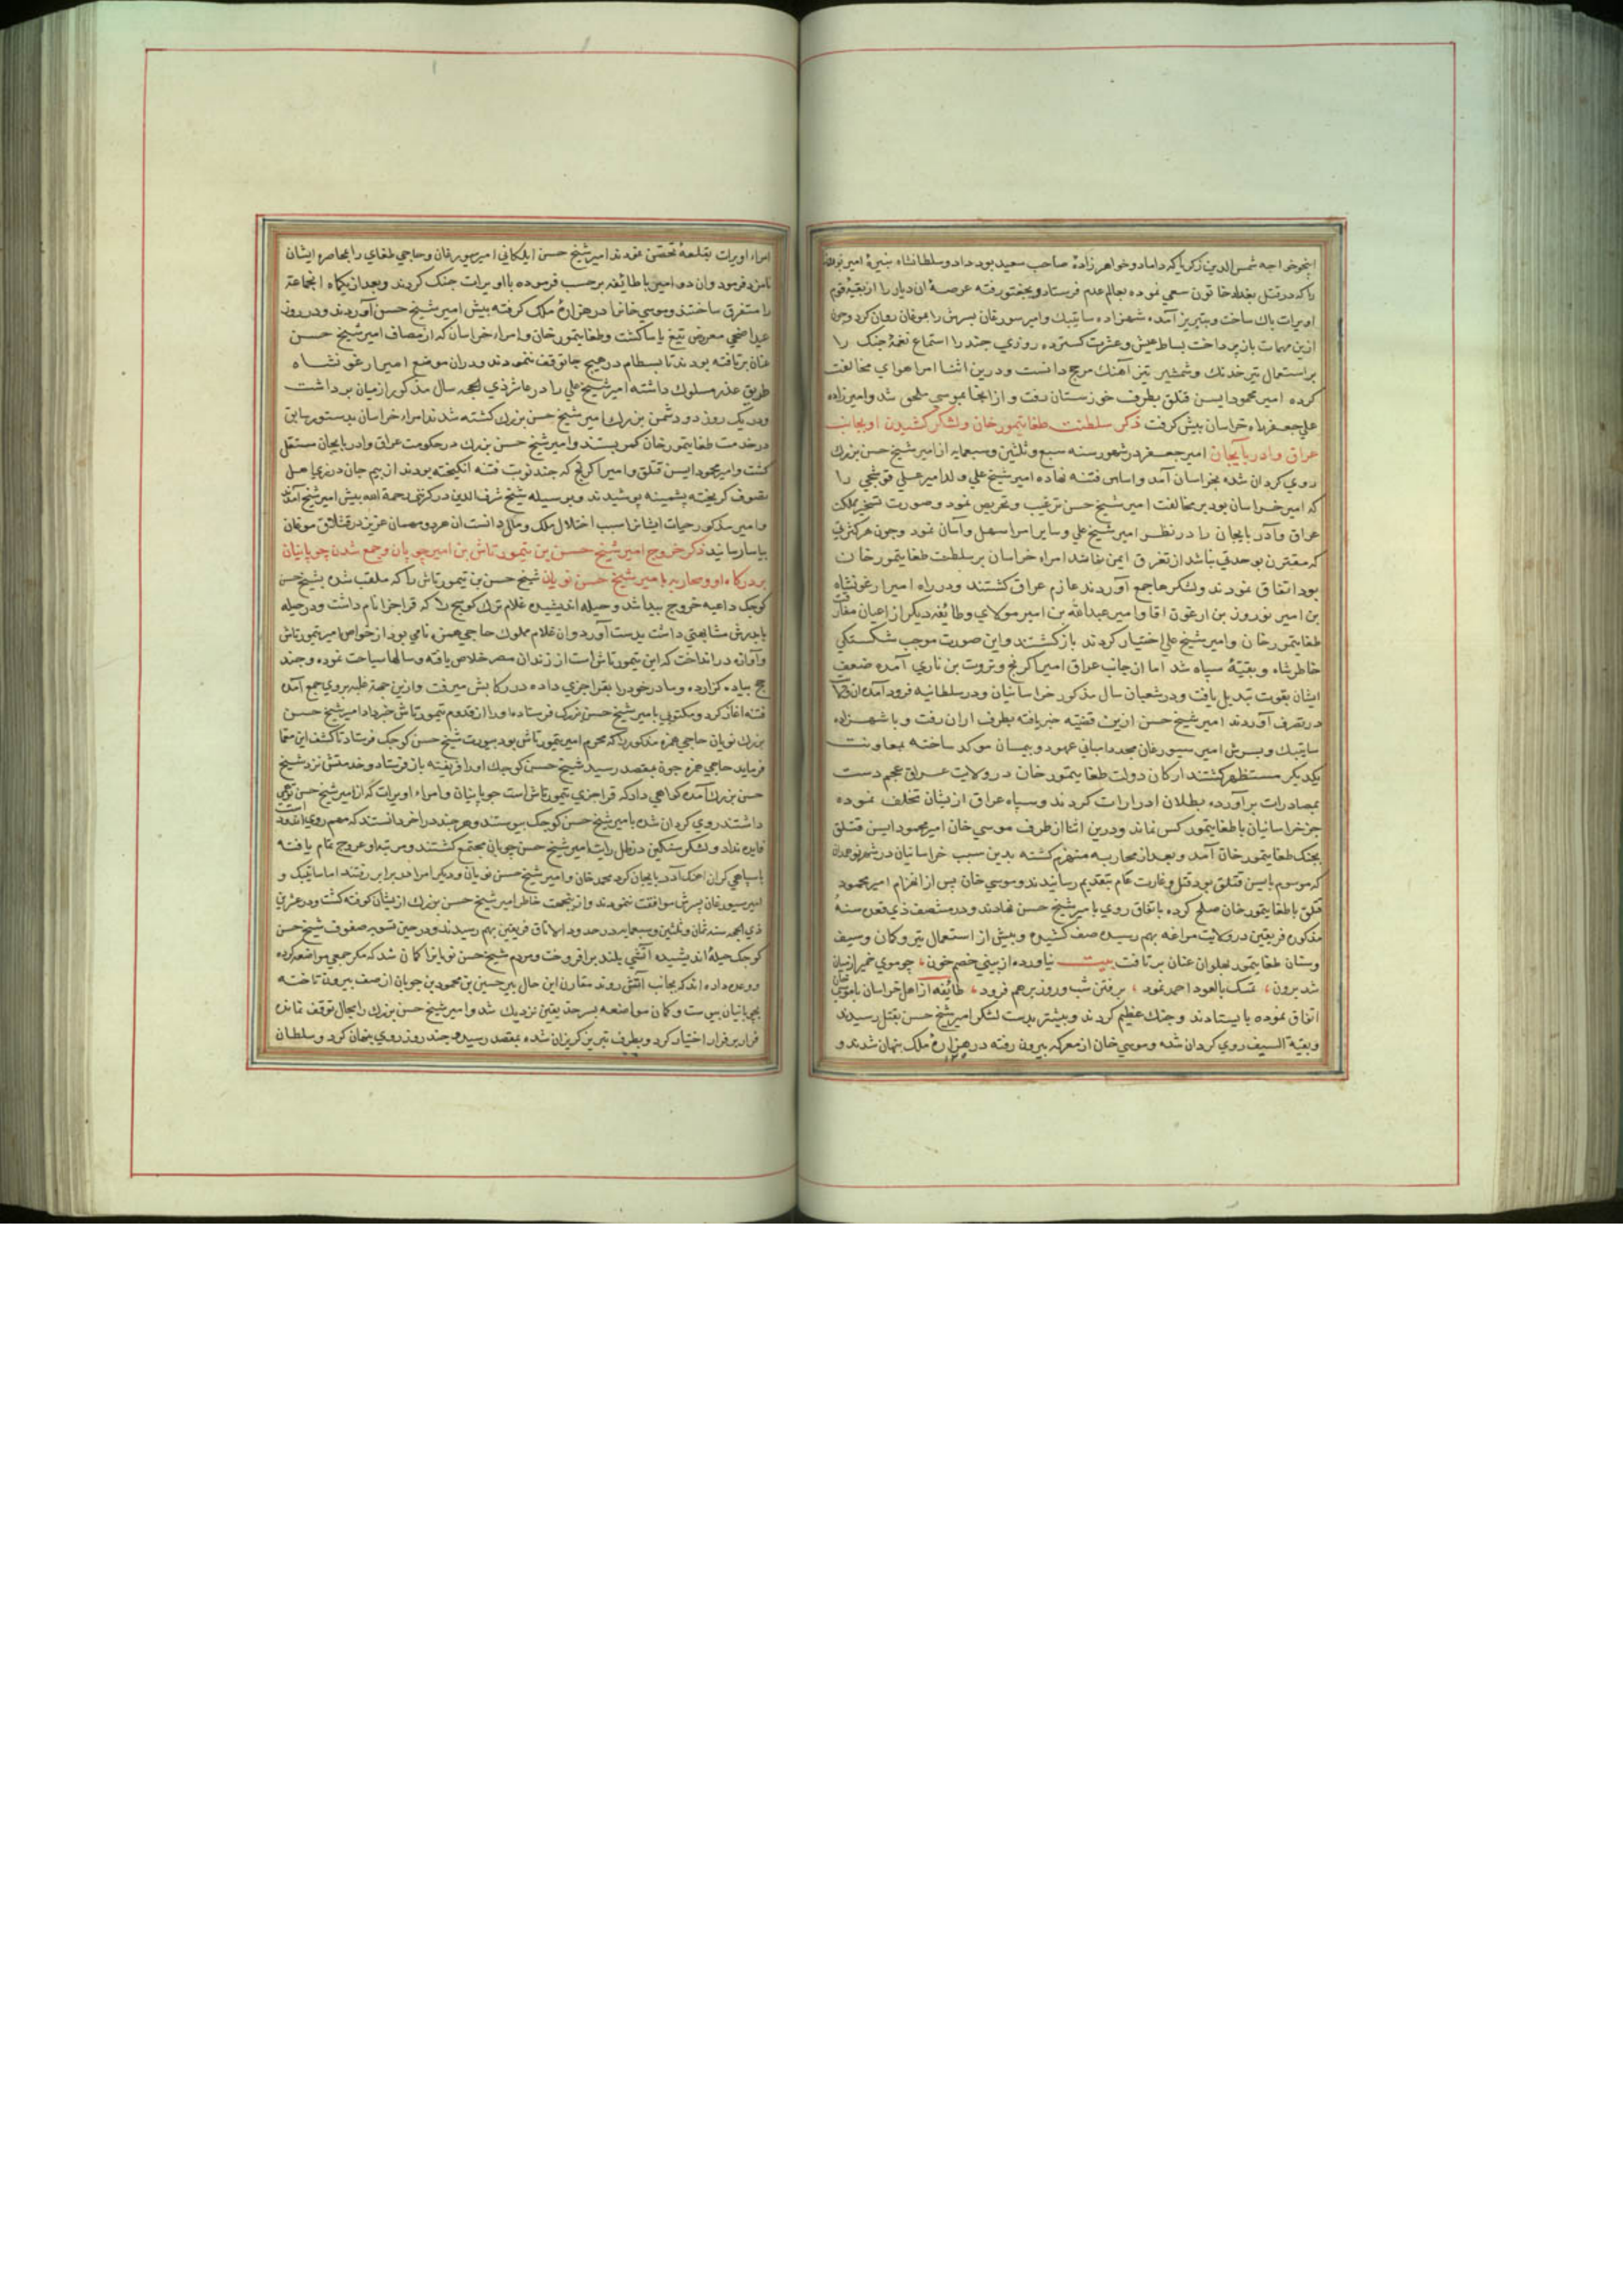 اینجو خواجه شمس الدین زکریا که داماد و خواهرزادهٔ صاحب سعید بود داد و سلطانشاه نبیرهٔ امیر نوروز
را که در قتل بغداد خاتون سعی نموده بعالم عدم فرستاد و بجغتو رفته عرصهٔ آن دیار را از بقیهٔ قوم
اویرات پاک ساخت و بتبریز آمده شهزاده ساتیبک و امیر سورغان پسرش را بموغان روان کرد و چون
ازین مهمات بازپرداخت بساط عیش و عشرت کسترده روزی چند را استماع نغمهٔ چنک را
بر استعمال تیر خدنک و شمشیر تیز آهنک مرجح دانست و درین اثنا امرا هوای مخالفت
کرده امیر محمود ایسن قتلق بطرف خوزستان رفت و از آنجا بموسی ملحق شد و امیرزاده
علی جعفر راه خراسان پیش کرفت ذکر سلطنت طغایتمور خان و لشکر کشیدن او بجانب
عراق و آذربایجان امیر جعفر در شهور سنه سبع و ثلثین و سبعمایه از امیر شیخ حسن بزرک
روی کردان شده بخراسان آمد و اساس فتنه نهاده امیر شیخ علی ولد امیر علی قوشجی را
که امیر خراسان بود بر مخالفت امیر شیخ حسن ترغیب و تحریص نمود و صورت تسخیر مملکت
عراق و آذربایجان را در نظر امیر شیخ علی و سایر امرا سهل و آسان نمود و چون هر کثرتی
که مقترن بوحدتی نباشد از تفرق ایمن نماشد امراء خراسان بر سلطنت طغایتمور خان
بود اتفاق نمودند و لشکرها جمع آوردند عازم عراق کشتند و در راه امیر ارغونشاه
بن امیر نوروز بن ارغون آقا و امیر عبدالله بن امیر مولای و طایفه دیکر از اعیان مفارقت
طغایتمور خان و امیر شیخ علی اختیار کردند بازکشتند و این صورت موجب شکستکی
خاطر شاه و بقیهٔ سپاه شد اما از جانب عراق امیر اکرنج و ثروت بن ناری آمده ضعف
ایشان بقوت تبدیل یافت و در شعبان سال مذکور خراسانیان در سلطانیه فرود آمده
در تصرف آوردند امیر شیخ حسن ازین قضیه خبر یافته بطرف اران رفت و با شهزاده
ساتیبک و پسرش امیر سیورغان مجددا مبانی عهود و پیمان موکد ساخته بمعاونت
یکدیکر مستظهر کشتند ارکان دولت طغایتمور خان در ولایت عراق عجم دست
بمصادرات برآورده بطلان ادرارات کردند و سپاه عراق ازیشان تخلف نموده
جز خراسانیان با طغایتمور کس نماند و درین اثنا از طرف موسی خان امیر محمود ایسن قتلق
بجنک طغایتمور خان آمد و بعد از محاربه منهزم کشته بدین سبب خراسانیان در شهر نوجدان
که موسوم بایسن قتلق بود قتل و غارت عام بتقدیم رسانیدند و موسی خان پس از انهزام امیر محمود
قتلق با طغایتمور خان صلح کرده باتفاق روی بامیر شیخ حسن نهادند و در منتصف ذی قعده سنهٔ
مذکوره فریقین در ولایت مراغه بهم رسیده صف کشیده و پیش از استعمال تیر و کمان و سیف
و سنان طغایتمور پهلوان عنان برتافت بیت نیاورده از بینی خصم خون، چو موی خمیر از میان
شد برون، تمسک بالعود احمد نمود، برفتن شب و روز برهم فزود، طائفه از اهل خراسان با موسی خان
اتفاق نموده بایستادند و جنک عظیم کردند و بیشتر بدست لشکر امیر شیخ حسن بقتل رسیدند
و بقیة السیف روی کردان شده و موسی خان از معرکه بیرون رفته در هزارهٔ ملک پنهان شدند و
امراء اویرات بقلعهٔ تحصن نمودند امیر شیخ حسن ایلکانی امیر سیورغان و حاجی طغای را بمحاصره ایشان
نامزد فرمود و آن دو امیر با طائفه بر حسب فرموده با اویرات جنک کردند و بعد از یکماه آنجماعت
را متفرق ساختند و موسی خانرا در هزارهٔ ملک کرفته پیش امیر شیخ حسن آوردند و در روز
عید اضحی معروض تیغ یاسا کشت و طغایتمور خان و امراء خراسان که از مصاف امیر شیخ حسن
عنان برتافته بودند تا بسطام در هیچ جا توقف ننمودند و در آن موضع امیر ارغونشاه
طریق غدر مسلوک داشته امیر شیخ علی را در عاشر ذی الحجه سال مذکور از میان برداشت
و در یک روز دو دشمن بزرک امیر شیخ حسن بزرک کشته شدند امراء خراسان بدستور سابق
در خدمت طغایتمور خان کمر بستند و امیر شیخ حسن بزرک در حکومت عراق و آذربایجان مستقل
کشت و امیر محمود ایسن قتلق و امیر اکرنج که چند نوبت فتنه انکیخته بودند از بیم جان در زی اهل
تصوف کریخته پشمینه پوشیدند و بوسیله شیخ شرف الدین درکزینی رحمة الله پیش امیر شیخ آمدند
و امیر مذکور حیات ایشانرا سبب اختلال ملک و ملل دانست آن هر دو مهمان عزیز در قشلاق موغان
بیاسا رسانید ذکر خروج امیر شیخ حسن بن تیمورتاش بن امیر چوپان و جمع شدن چوپانیان
بر درکاه او و محاربه با امیر شیخ حسن نویان شیخ حسن بن تیمورتاش را که ملقب شده بشیخ حسن
کوچک داعیه خروج پیدا شد و حیله اندیشیده غلام ترک کوپج را که قراجری نام داشت و در حیله
با پدرش مشابهتی داشت بدست آورد و آن غلام مملوک حاجی حمزه نامی بود از خواص امیر تیمورتاش
و آوازه در انداخت که این تیمورتاش است از زندان مصر خلاص یافته و سالها سیاحت نموده و چند
حج پیاده کزارده و مادر خود را بقراجری داده در رکابش میرفت و ازین جهة غلبه بروی جمع آمده
فتنه آغاز کرد و مکتوبی بامیر شیخ حسن بزرک فرستاده او را از قدوم تیمورتاش خبر داد امیر شیخ حسن
بزرک نویان حاجی حمزه مذکور را که محرم امیر تیمورتاش بود بصورت شیخ حسن کوچک فرستاد تا کشف این معما
فرماید حاجی حمزه چون بمقصد رسید شیخ حسن کوچک او را فریفته بازفرستاد و خدمتش نزد شیخ
حسن بزرک آمده کواهی داد که قراجری تیمورتاش است چوپانیان و امراء اویرات که از امیر شیخ حسن توهمی
داشتند روی کردان شده بامیر شیخ حسن کوچک پیوستند و هر چند در آخر دانستند که مهم روی اندود است
فایده نداد و لشکر سنکین در ظل رایت امیر شیخ حسن چوپانی مجتمع کشتند و مرتبه او عروج تمام یافته
با سپاهی کران آهنک آذربایجان کرد محمد خان و امیر شیخ حسن نویان و دیکر امرا در برابر رفتند اما ساتیبک و
امیر سیورغان پسرش موافقت ننمودند و ازینجهت خاطر امیر شیخ حسن بزرک ازیشان کوفته کشت و در عشرین
ذی الحجه سنه ثمان و ثلثین و سبعمایه در حدود آلاتاق فریقین بهم رسیدند و در حین تسویه صفوف شیخ حسن
کوچک حیلهٔ اندیشیده آتشی بلند برافروخت و مردم شیخ حسن نویانرا کمان شد که مکر جمعی مواضعه کرده
و وعده داده اند که بجانب آتش روند مقارن این حال پیر حسین بن محمود بن چوپان از صف بیرون تاخته
بچوپانیان پیوست و کمان مواضعه بسرحد یقین نزدیک شد و امیر شیخ حسن بزرک را مجال توقف نمانده
فرار بر قرار اختیار کرد و بطرف تبریز کریزان شده بمقصد رسیده چند روز روی پنهان کرد و سلطان